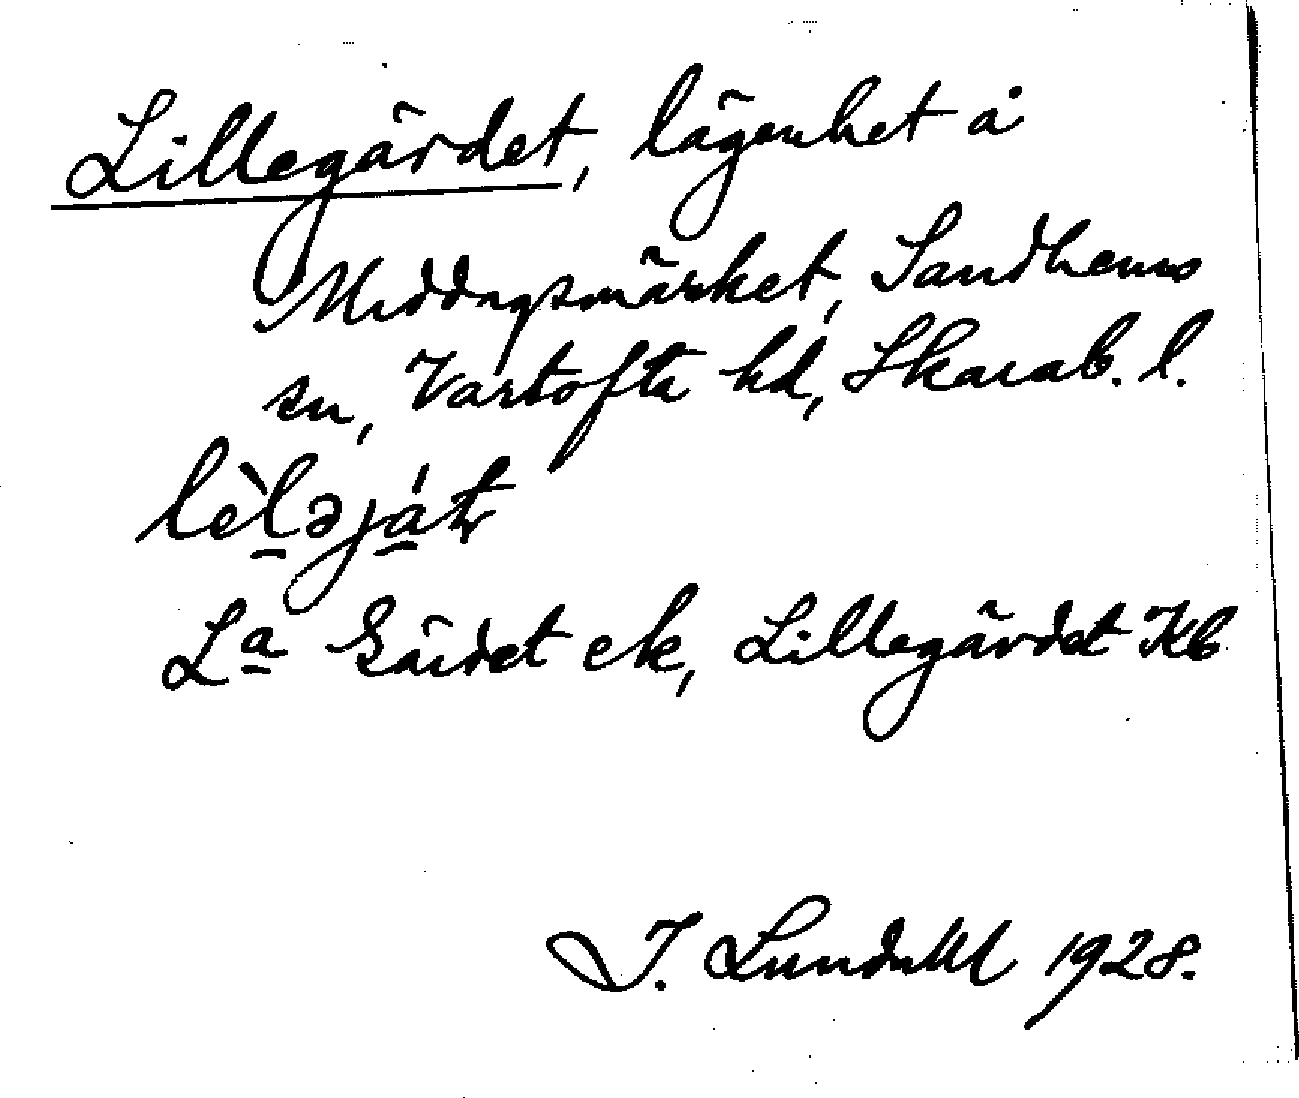 Lillegärdet, lägenhet å
Middagsmärket, Sandhems
sn, Vartofta hd, Skarab. l.
lèləját
La Gärdet ek, Lillegärdet Kb
I. Lundahl 1928.